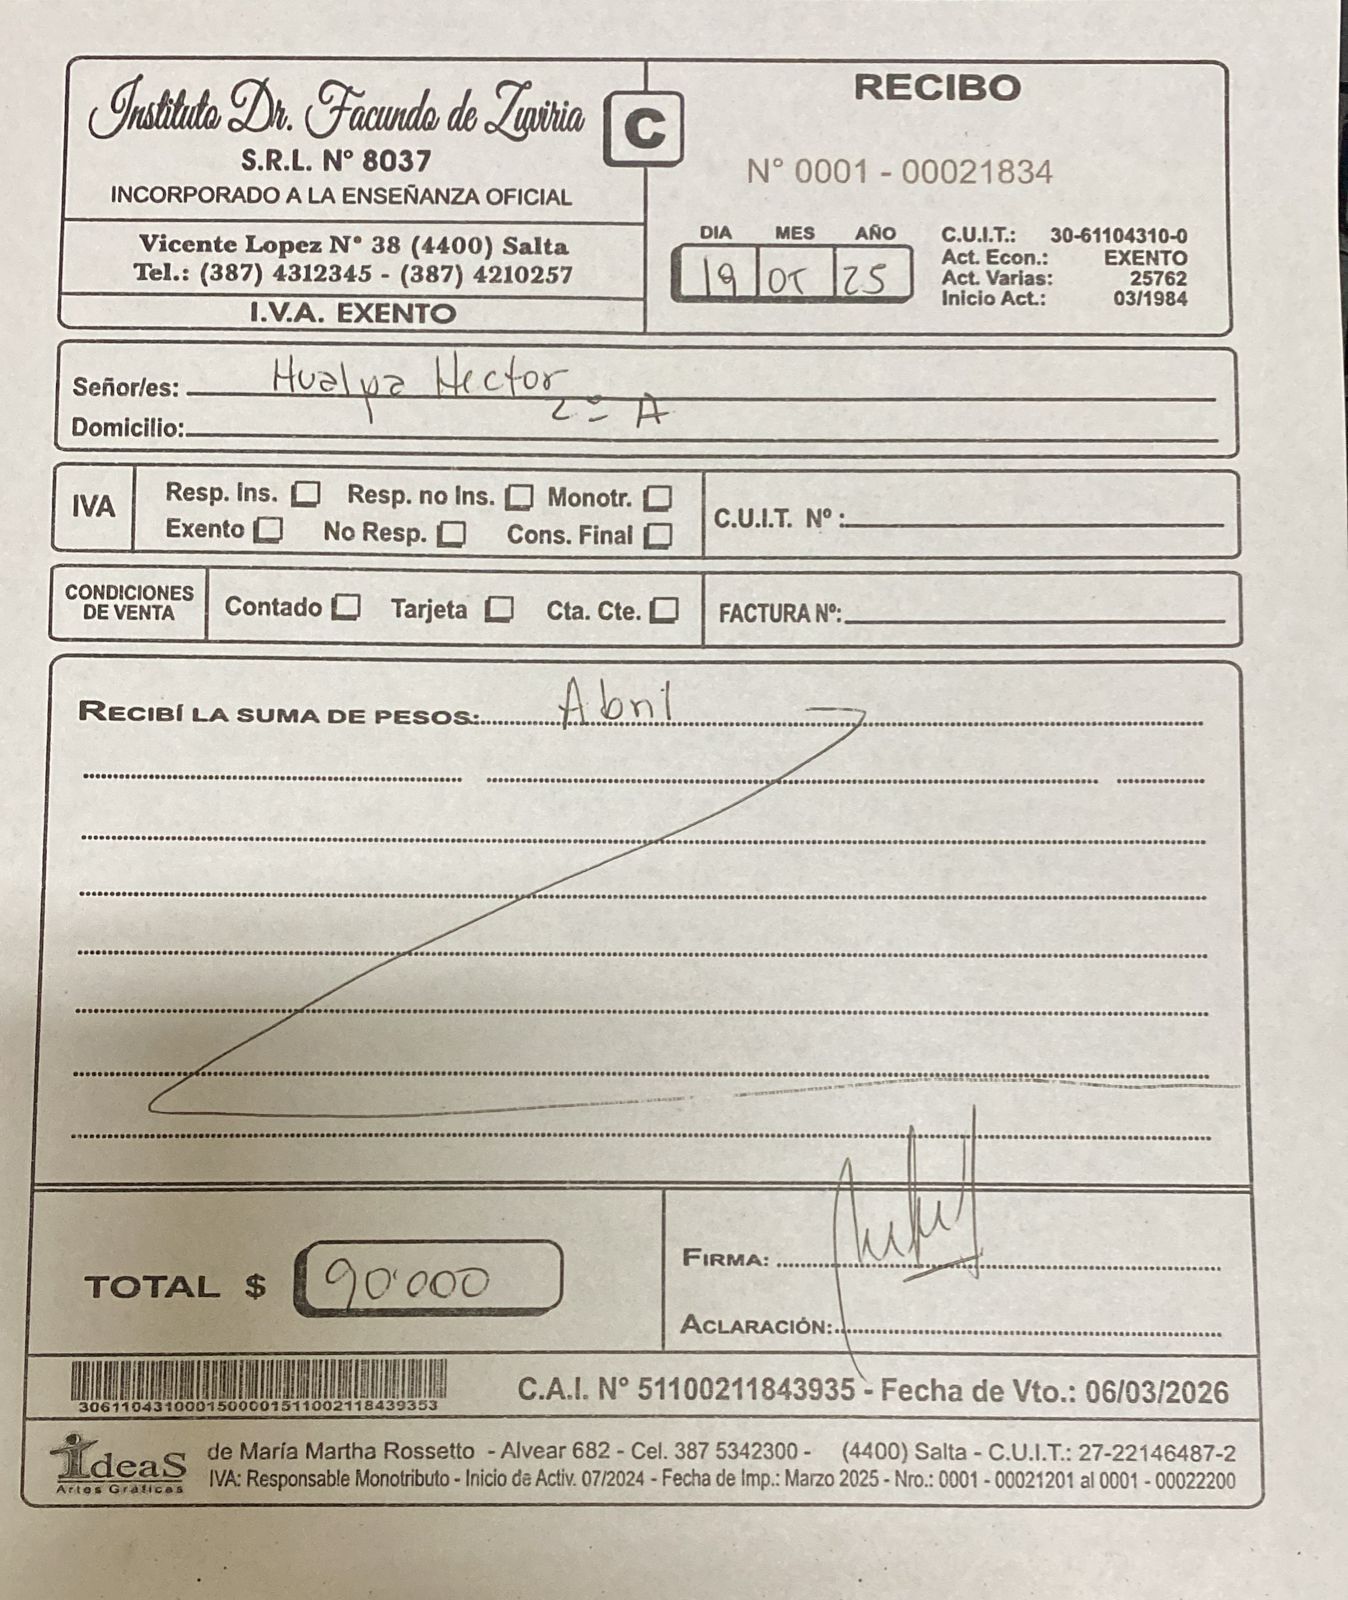 Instituto Dr. Facundo de Zuviria
S.R.L. N° 8037
INCORPORADO A LA ENSEÑANZA OFICIAL
Vicente Lopez N° 38 (4400) Salta
Tel.: (387) 4312345 - (387) 4210257
I.V.A. EXENTO
C
RECIBO
N° 0001 - 00021834
DIA MES AÑO
19 05 25
C.U.I.T.: 30-61104310-0
Act. Econ.: EXENTO
Act. Varias: 25762
Inicio Act.: 03/1984
Señor/es: Hualpa Hector
2º A
Domicilio:
IVA
Resp. Ins. Resp. no Ins. Monotr.
Exento No Resp. Cons. Final
C.U.I.T. Nº :
CONDICIONES
DE VENTA
Contado Tarjeta Cta. Cte.
FACTURA Nº:
RECIBÍ LA SUMA DE PESOS: Abril
TOTAL $ 90'000
FIRMA:
ACLARACIÓN:
3061104310001500001511002118439353
C.A.I. N° 51100211843935 - Fecha de Vto.: 06/03/2026
IdeaS
Artes Gráficas
de María Martha Rossetto - Alvear 682 - Cel. 387 5342300 - (4400) Salta - C.U.I.T.: 27-22146487-2
IVA: Responsable Monotributo - Inicio de Activ. 07/2024 - Fecha de Imp.: Marzo 2025 - Nro.: 0001 - 00021201 al 0001 - 00022200